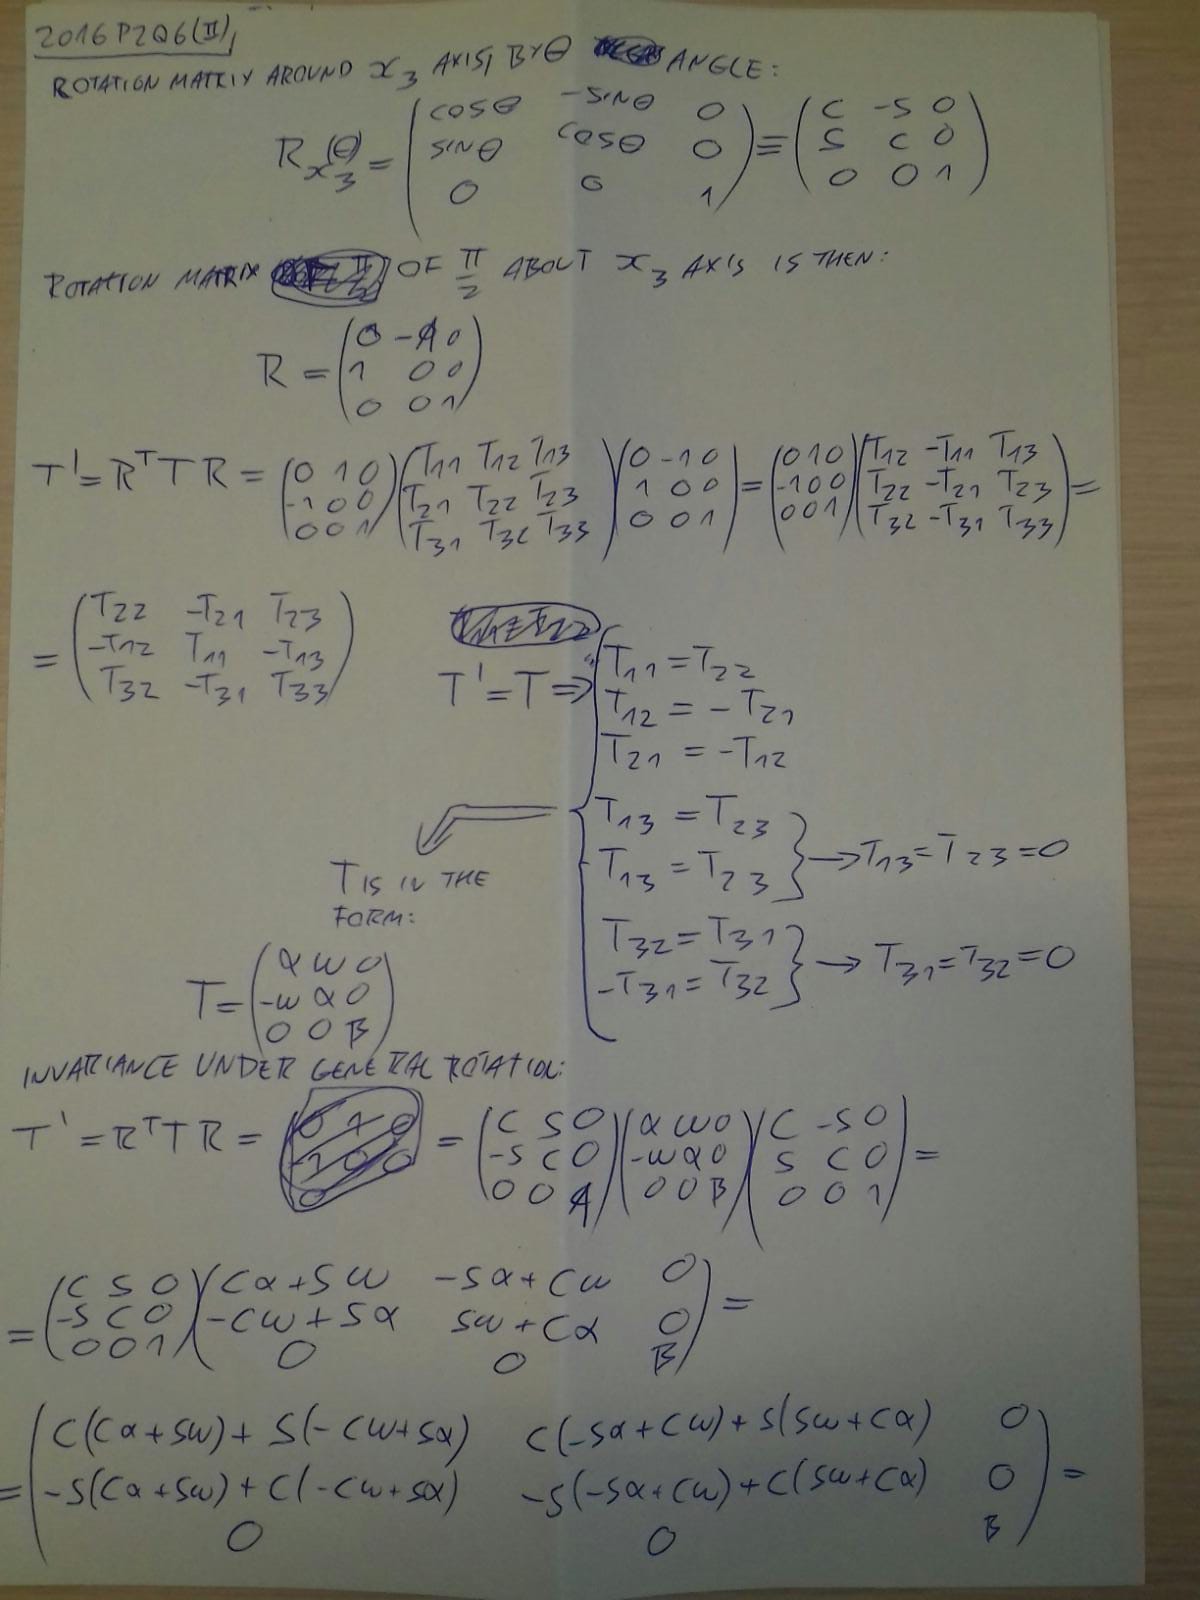 2016P2Q6(II),
ROTATION MATRIX AROUND x₃ AXIS, BY θ ANGLE:
R_{x₃}(θ) = (cosθ -sinθ 0; sinθ cosθ 0; 0 0 1) ≡ (C -S 0; S C 0; 0 0 1)
ROTATION MATRIX OF π/2 ABOUT x₃ AXIS IS THEN:
R = (0 -1 0; 1 0 0; 0 0 1)
T' = RᵀTR = (0 1 0; -1 0 0; 0 0 1)(T₁₁ T₁₂ T₁₃; T₂₁ T₂₂ T₂₃; T₃₁ T₃₂ T₃₃)(0 -1 0; 1 0 0; 0 0 1) = (0 1 0; -1 0 0; 0 0 1)(T₁₂ -T₁₁ T₁₃; T₂₂ -T₂₁ T₂₃; T₃₂ -T₃₁ T₃₃) =
= (T₂₂ -T₂₁ T₂₃; -T₁₂ T₁₁ -T₁₃; T₃₂ -T₃₁ T₃₃)
T' = T ⇒
T₁₁ = T₂₂
T₁₂ = -T₂₁
T₂₁ = -T₁₂
T₁₃ = T₂₃
T₁₃ = T₂₃ } → T₁₃ = T₂₃ = 0
T₃₂ = T₃₁
-T₃₁ = T₃₂ } → T₃₁ = T₃₂ = 0
T IS IN THE
FORM:
T = (α ω 0; -ω α 0; 0 0 β)
INVARIANCE UNDER GENERAL ROTATION:
T' = RᵀTR = = (C S 0; -S C 0; 0 0 1)(α ω 0; -ω α 0; 0 0 β)(C -S 0; S C 0; 0 0 1) =
= (C S 0; -S C 0; 0 0 1)(Cα+Sω -Sα+Cω 0; -Cω+Sα Sω+Cα 0; 0 0 β) =
= (C(Cα+Sω)+S(-Cω+Sα) C(-Sα+Cω)+S(Sω+Cα) 0; -S(Cα+Sω)+C(-Cω+Sα) -S(-Sα+Cω)+C(Sω+Cα) 0; 0 0 β) =